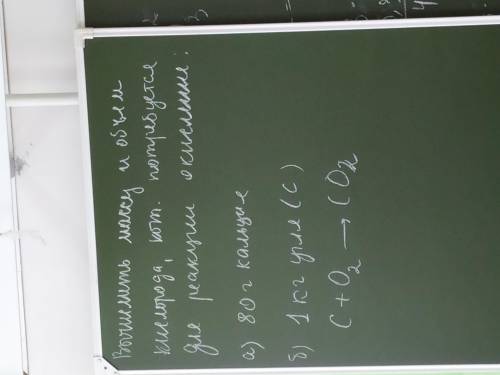 Вычислить массу и объем
кислорода, кот. потребуется
для реакции окисления:
а) 80 г кальция
б) 1 кг угля (С)
C + O₂ → CO₂